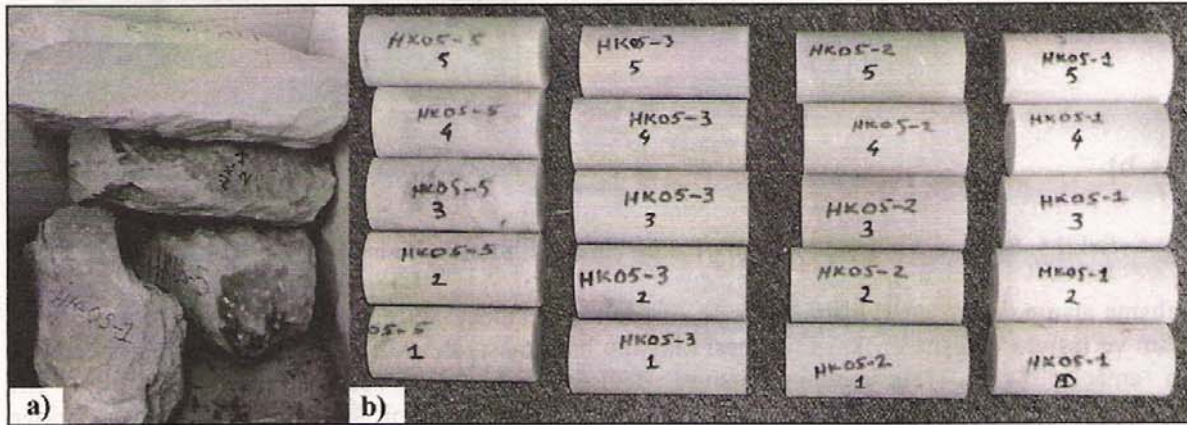 HK05-1
a)
HK05-5
5
HK05-5
4
HK05-5
3
HK05-5
2
05-5
1
HK05-3
5
HK05-3
4
HK05-3
3
HK05-3
2
HK05-3
1
HK05-2
5
HK05-2
4
HK05-2
3
HK05-2
2
HK05-2
1
HK05-1
5
HK05-1
4
HK05-1
3
HK05-1
2
HK05-1
1
b)